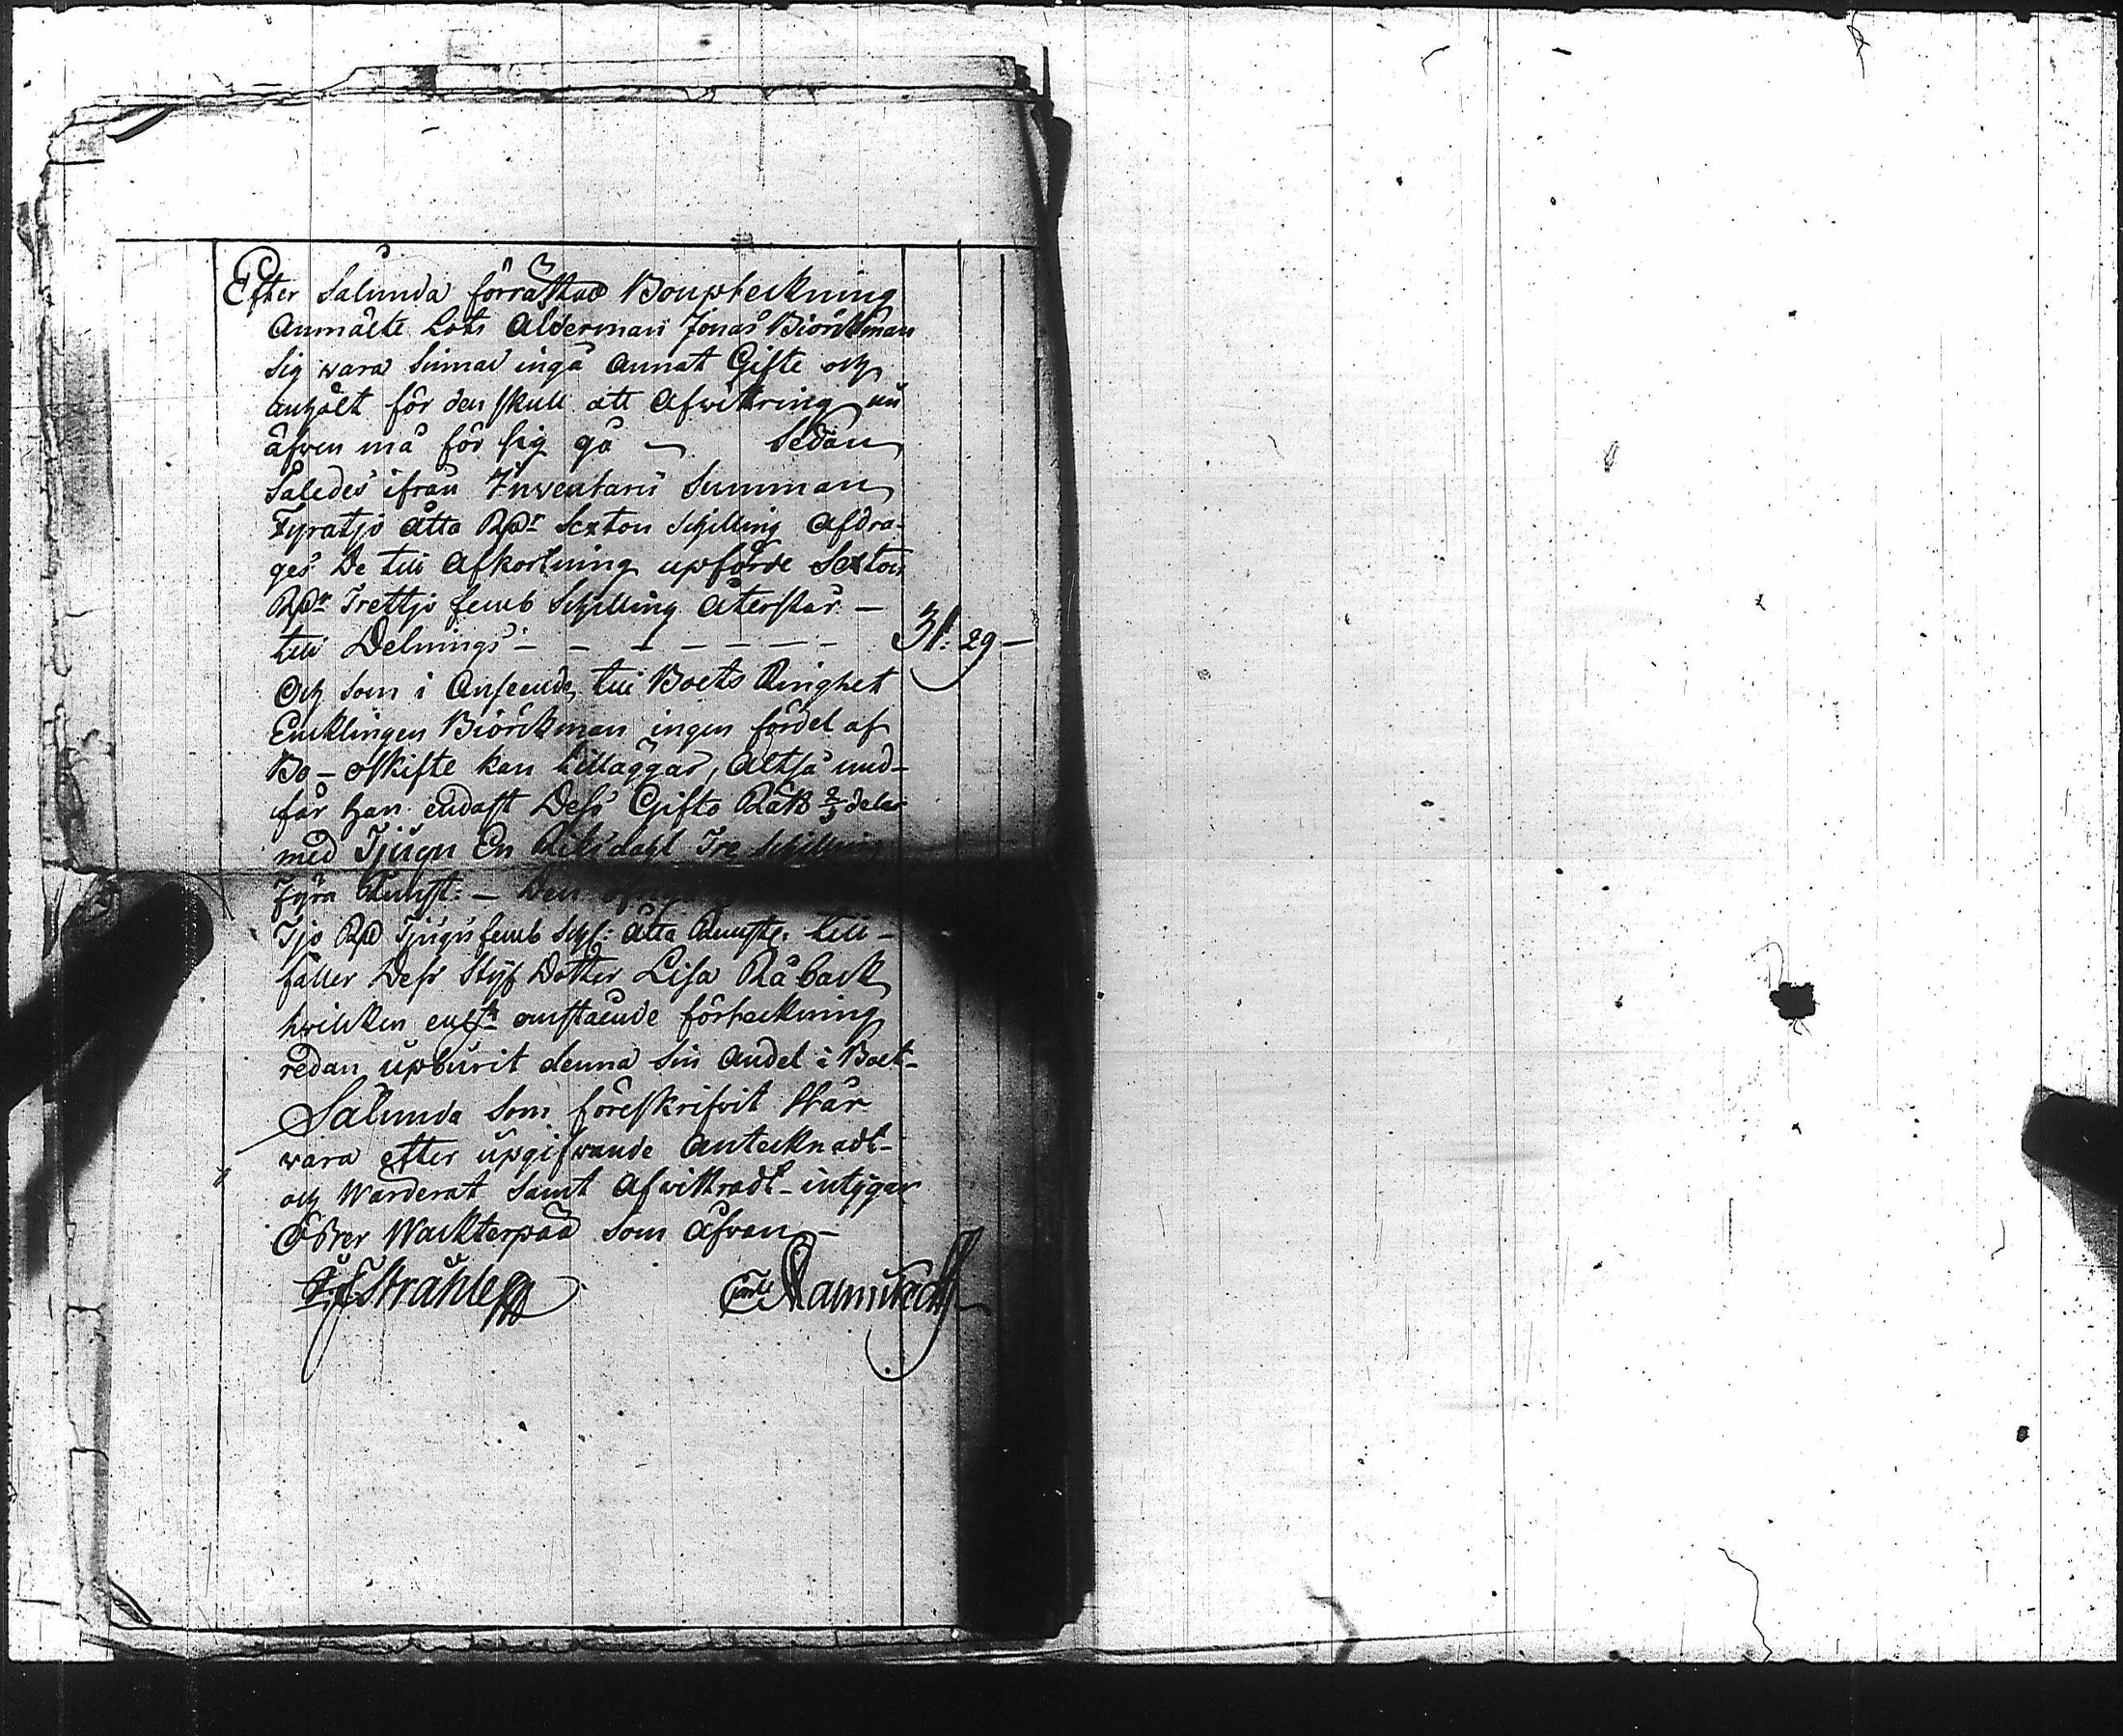 Efter Sålunda förrättad Boupteckning
Anmälte Lots Ålderman Jonas Biörckman
sig wara sinnad ingå annat Gifte och
anhölt för den skull att Afwittring nu
äfwen må för sig gå — Sedan
Således ifrån Inventarii Summan
Fyratjo åtta Rdr Sexton Schilling Afdra-
ges De till Afkortning upförde Sexton
Rdr Trettjo femb Schilling Återstår —
till Delnings — — — — — — 31: 29 —
Och som i Anseende till Boets Ringhet
Encklingen Biörckman ingen fördel af
Bo-oskifte kan tilläggas, Altså und-
får han endast Dess Gifto Rätt 2/3 delar
med Tjugu En Riksdahl Tre Schilling
Fyra Runst: — Den öfriga
Tjo Rd Tjugu femb Sch: Åtta Runstr. till-
faller Dess Styf Dotter Lisa Råback
hwilcken enl omstående förteckning
redan upburit denna sin Andel i Boet-
Sålunda som föreskrifvit står
wara efter upgifwande Antecknadt-
och Wärderat samt Afwittradt - intygar
Odrer Wackterpåå som åfvan —
Stråhle